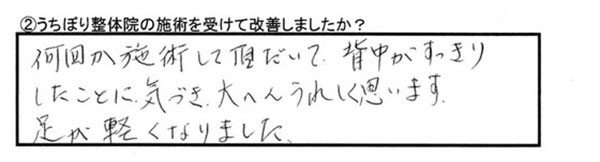 ②うちぼり整体院の施術を受けて改善しましたか?
何回か施術して頂だいて、背中がすっきり
したことに、気づき、大へんうれしく思います。
足が軽くなりました、